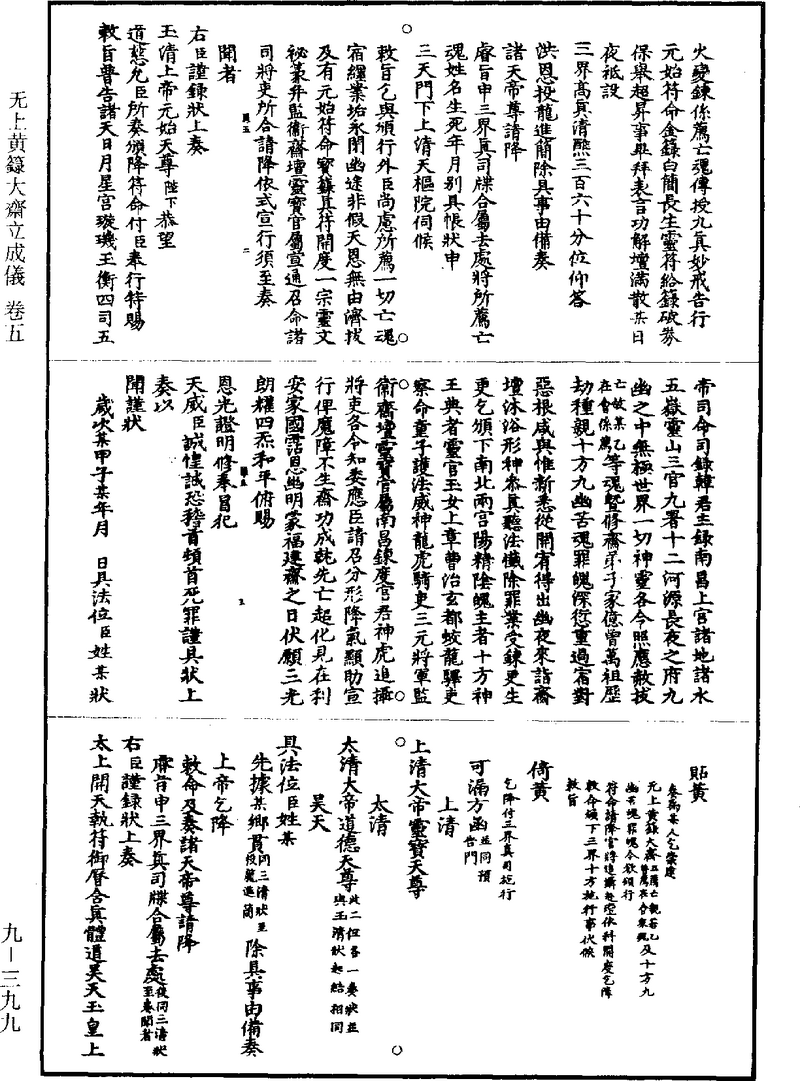 火變鍊係薦亡魂傳授九真妙戒告行
元始符命金籙白簡長生靈符給籙破券
保舉超昇事畢拜表言功解壇滿散某日
夜祗設
三界高真清醮三百六十分位仰答
洪恩投龍進簡除具事由備奏
諸天帝尊請降
睿旨申三界真司牒合屬去處將所薦亡
魂姓名生死年月別具帳狀申
三天門下上清天樞院伺候
敕旨乞與頒行外臣尚慮所薦一切亡魂
宿纏業垢永閉幽途非假天恩無由濟拔
及有元始符命寶籙真符開度一宗靈文
祕篆并監衛齋壇靈寶官屬宣通召命諸
司將吏所合請降依式宣行須至奏
聞者
右臣謹錄狀上奏
玉清上帝元始天尊陛下恭望
道慈允臣所奏頒降符命付臣奉行特賜
敕旨普告諸天日月星宮璇璣玉衡四司五
帝司命司錄韓君主錄南昌上官諸地諸水
五嶽靈山三官九署十二河源長夜之府九
幽之中無極世界一切神靈各令照應救拔
亡故某乙等魂暨修齋弟子家億曾萬祖歷
在會係薦
劫種親十方九幽苦魂罪魄深愆重過宿對
惡根咸與惟新悉從開宥得出幽夜來詣齋
壇沐浴形神參真聽法懺除罪業受鍊更生
更乞頒下南北兩宮陽精陰魄主者十方神
王典者靈官玉女上章曹治玄都蛟龍驛吏
察命童子護法威神龍虎騎吏三元將軍監
衛齋壇靈寶官屬南昌鍊度官君神虎追攝
將吏各令知委應臣請召分形降氣顯助宣
行俾魔障不生齋功成就先亡超化見在利
安家國霑恩幽明蒙福建齋之日伏願三光
朗耀四炁和平俯賜
恩光證明修奉冒犯
天威臣誠惶誠恐稽首頓首死罪謹具狀上
奏以
聞謹狀
歲次某甲子某年月　日具法位臣姓某狀
貼黃
奏為某人乞崇建
无上黃籙大齋
及十方九
幽苦魂罪魄令欲頒行
符命請降官將追攝赴壇依科開度乞降
敕命頒下三界十方施行事伏候
敕旨
倚黃
乞降付三界真司施行
可漏方函並同預告門
上清
上清大帝靈寶天尊
太清
太清大帝道德天尊此二但各一奏狀並與玉清狀起結相同
昊天
具法位臣姓某
先據某鄉貫同三清狀至投龍進簡除具事由備奏
上帝乞降
敕命及奏諸天帝尊請降
睿旨申三界真司牒合屬去處後同三清狀至奏聞者
右臣謹錄狀上奏
太上開天執符御曆含真體道昊天玉皇上
无上黃籙大齋立成儀　卷五
九－三九九